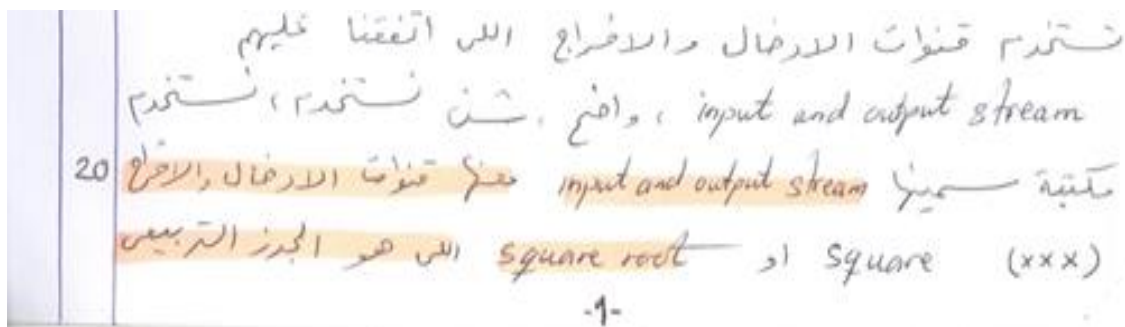 تستخدم قنوات الادخال والاخراج اللى اتفقنا عليهم
input and output stream ، واضح ، شن نستخدم ، نستخدم
20 مكتبة سميتها input and output stream معنها قنوات الادخال والاخراج
(xxx) square او square root اللى هو الجدز التربيعى
-1-